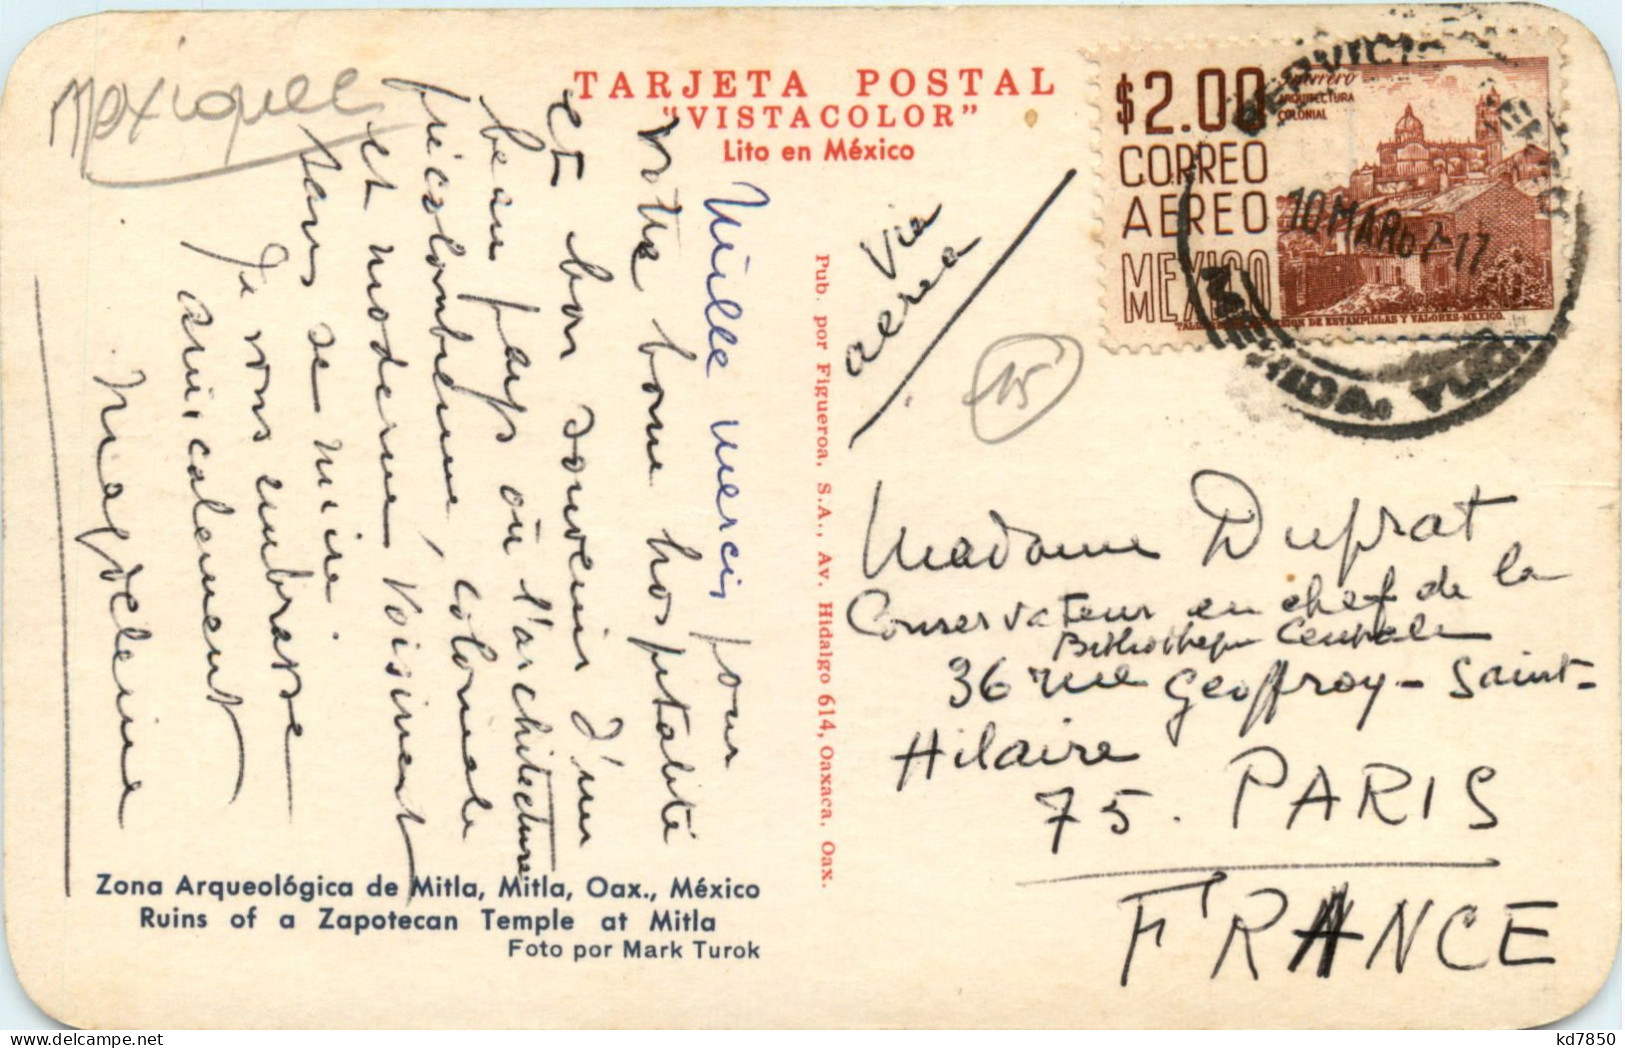 Mexique
TARJETA POSTAL
"VISTACOLOR"
Lito en México
Mille mercis pour
votre bonne hospitalité
et bon souvenir d'un
beau pays où l'architecture
précolombienne, coloniale
et moderne, voisinent
sans se nuire
Je vous embrasse
amicalement
Magdeleine
Zona Arqueológica de Mitla, Mitla, Oax., México
Ruins of a Zapotecan Temple at Mitla
Foto por Mark Turok
Pub. por Figueroa, S.A., Av. Hidalgo 614, Oaxaca, Oax.
Via
aerea
15
$2.00
CORREO
AEREO
MEXICO
Guerrero
ARQUITECTURA
COLONIAL
DE ESTAMPILLAS Y VALORES-MEXICO.
10 MAR 67-17
MERIDA. YUC.
Madame Duprat
Conservateur en chef de la
Bibliothèque Centrale
36 rue Geoffroy-Saint-
Hilaire
75. PARIS
FRANCE
kd7850